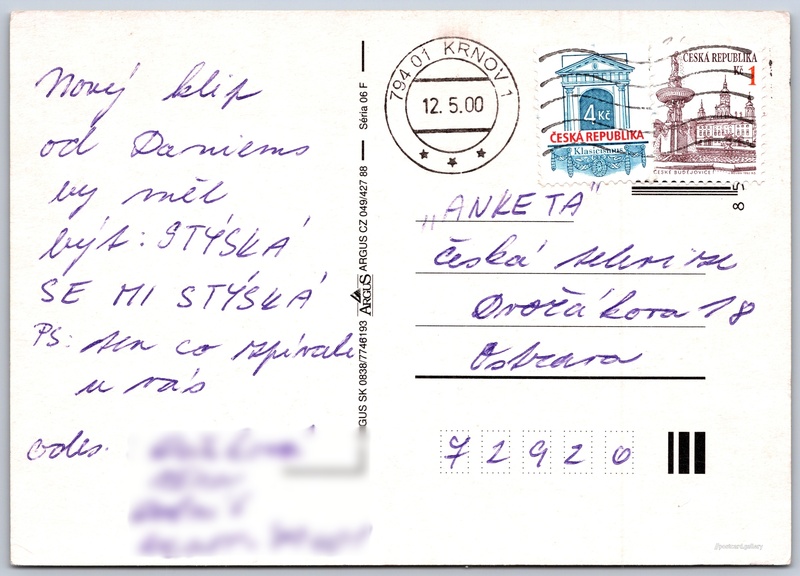 Nový klip
od Daniems
by měl
být: STÝSKÁ
SE MI STÝSKÁ
PS: ten co zpívale
u vás
odes.
Séria 06 F
ARGUS CZ 049/427 88
ARGUS
GUS SK 0838/7746193
794 01 KRNOV 1
12. 5. 00
4 Kč
ČESKÁ REPUBLIKA
Klasicismus
ČESKÁ REPUBLIKA
Kč 1
ČESKÉ BUDĚJOVICE
„ANKETA"
Česká televize
Dvořákova 18
Ostrava
72920